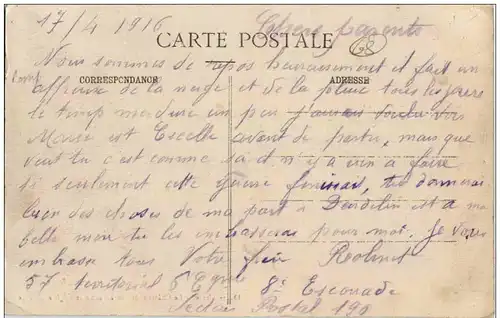 17/4 1916 Chers parents
CARTE POSTALE 68
Nous sommes de repos heureusement et fait un
CORRESPONDANCE ADRESSE
affreux de la neige et de la pluie tous les jours
le temp me dure un peu j'aurais voulu voir
Marie est avant de partir, mais que
veut tu c'est comme sa il n y a rien a faire
si seulement cette guerre finissait, tu donnerai
bien des choses de ma part a et a ma
belle mère tu les embrasseras pour moi. Je vous
embrasse tous Votre fils
57 territorial 6 8e Escouade
Secteur Postal 190